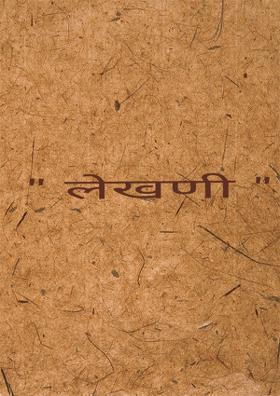 " लेखणी "